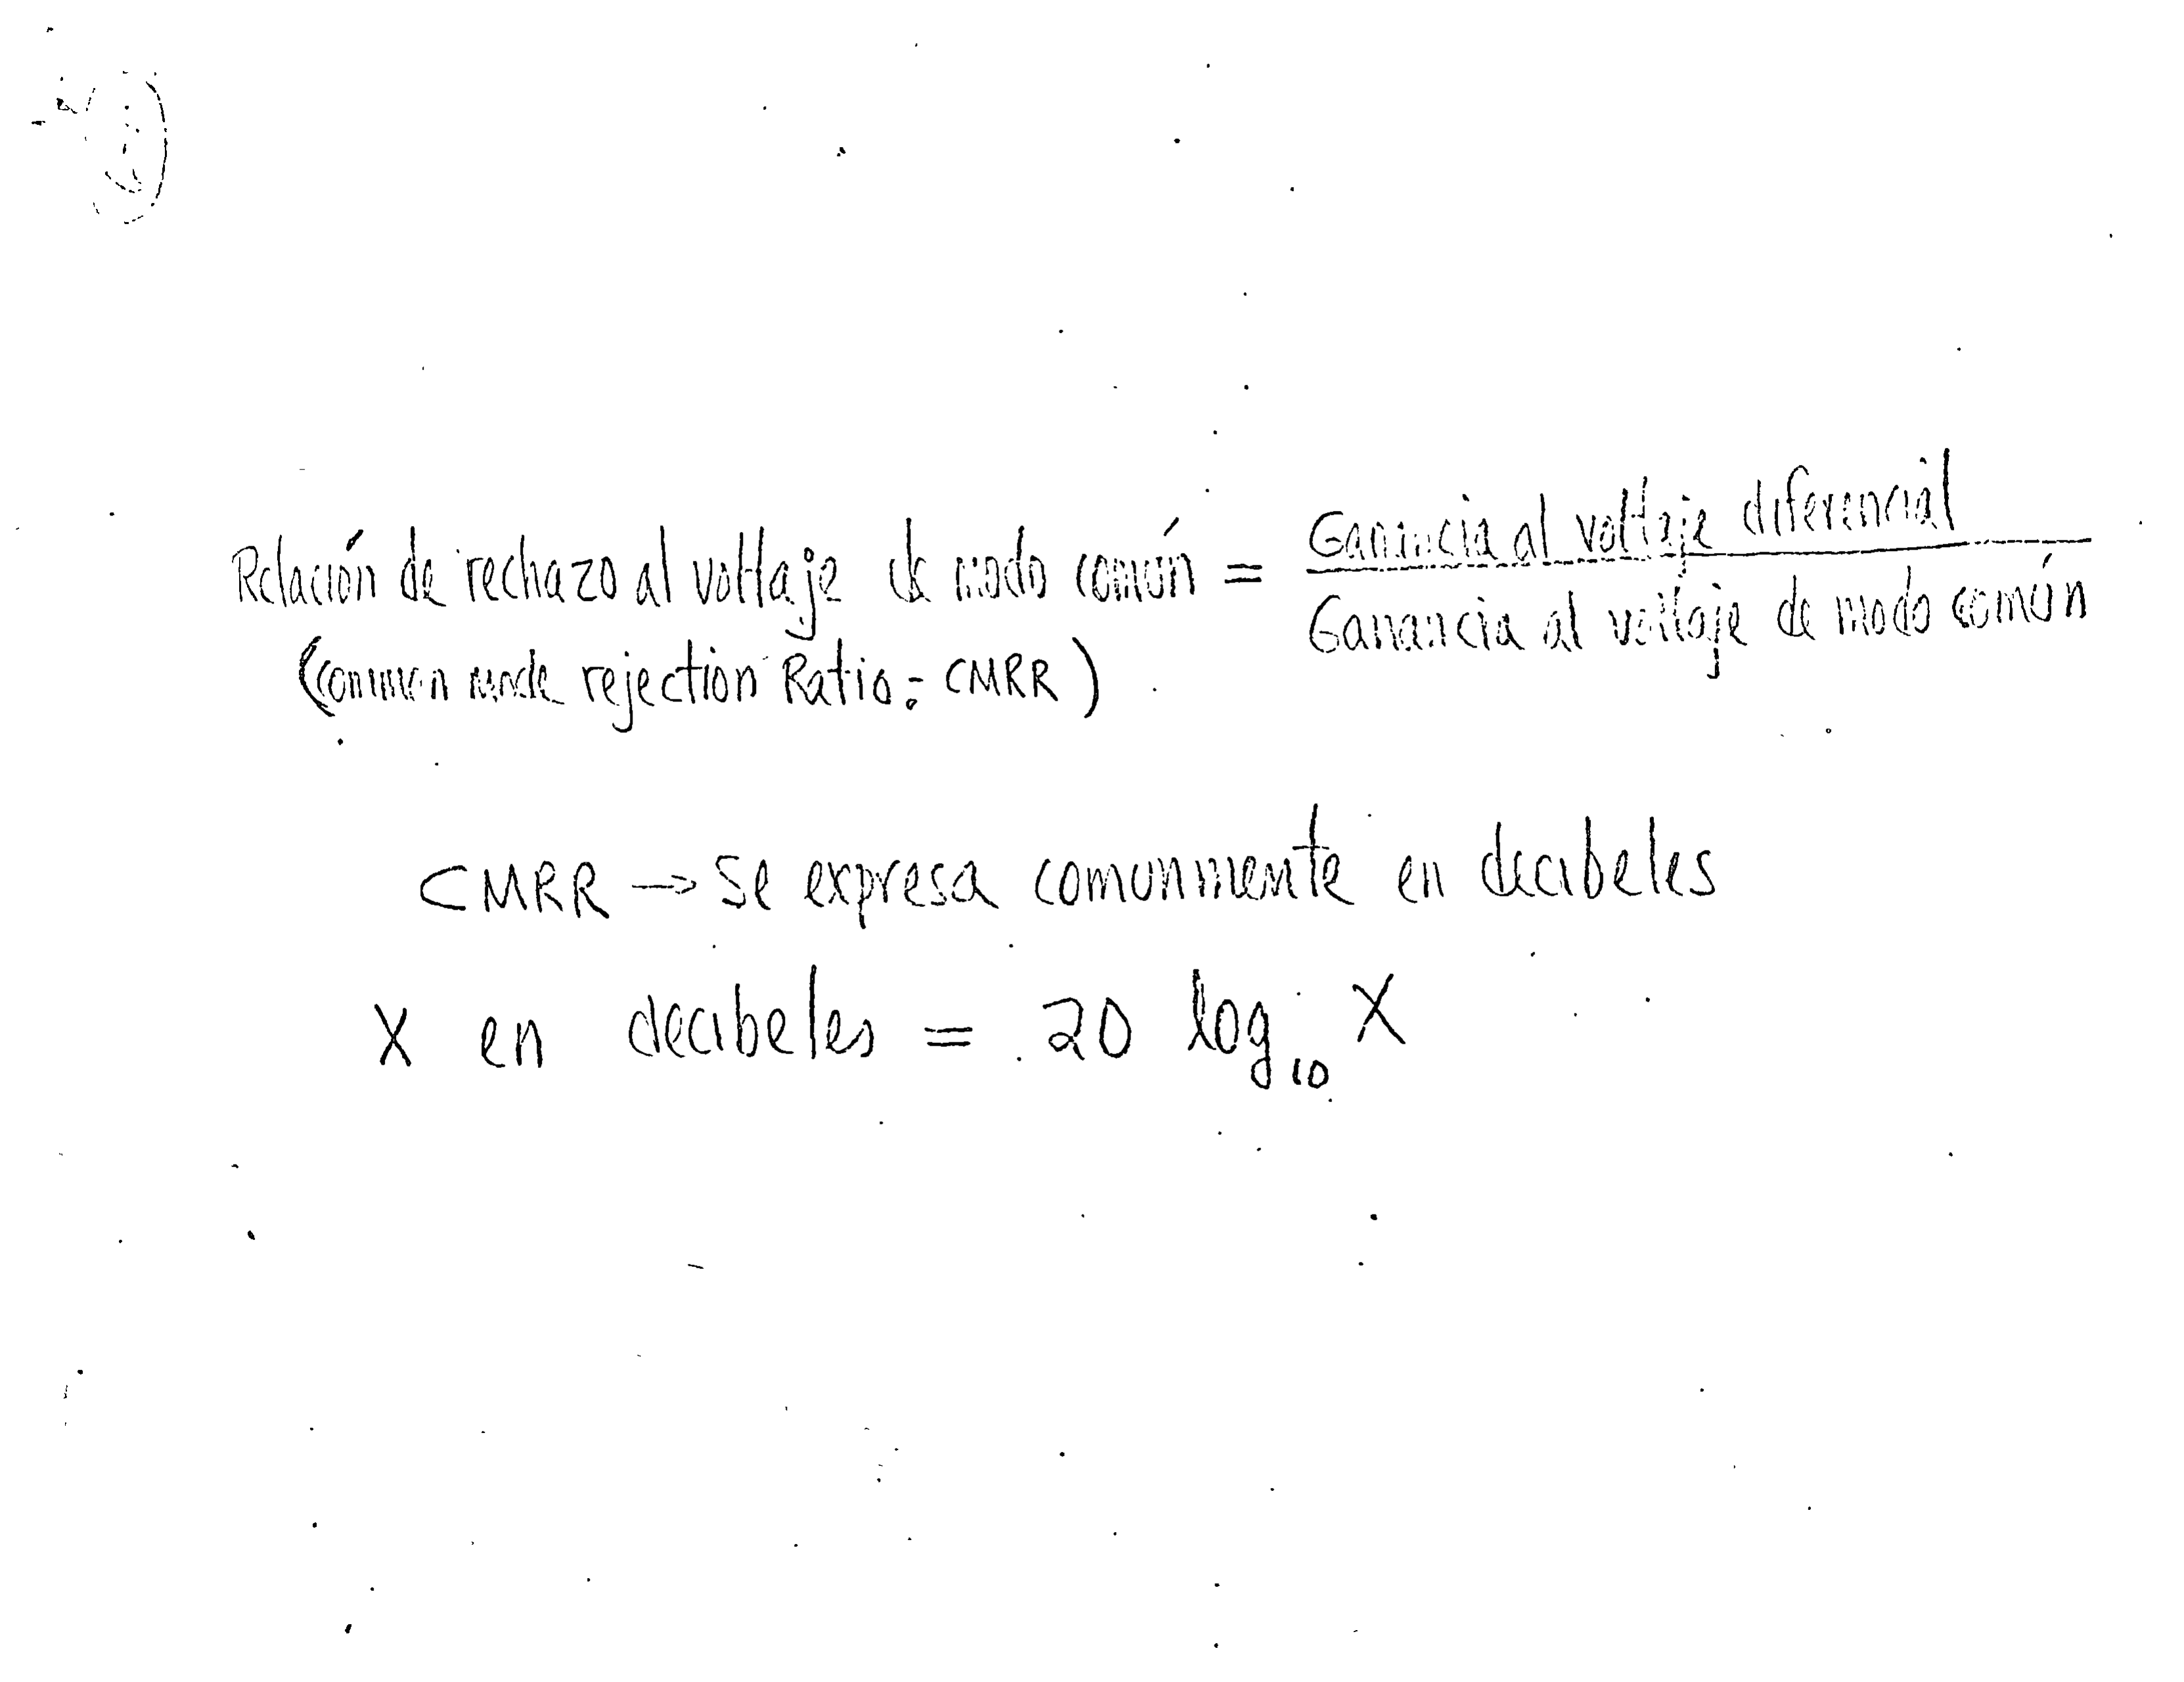 Relación de rechazo al voltaje de modo común = Ganancia al voltaje diferencial / Ganancia al voltaje de modo común
(common mode rejection Ratio: CMRR)
CMRR → se expresa comunmente en decibeles
X en decibeles = 20 log₁₀ X